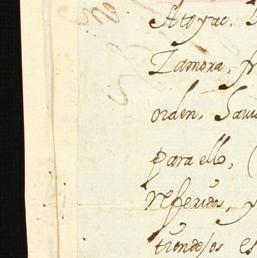 Atoyac,
Zamora, fr
orden,
para ello, (
referidos, y
tiendolos es